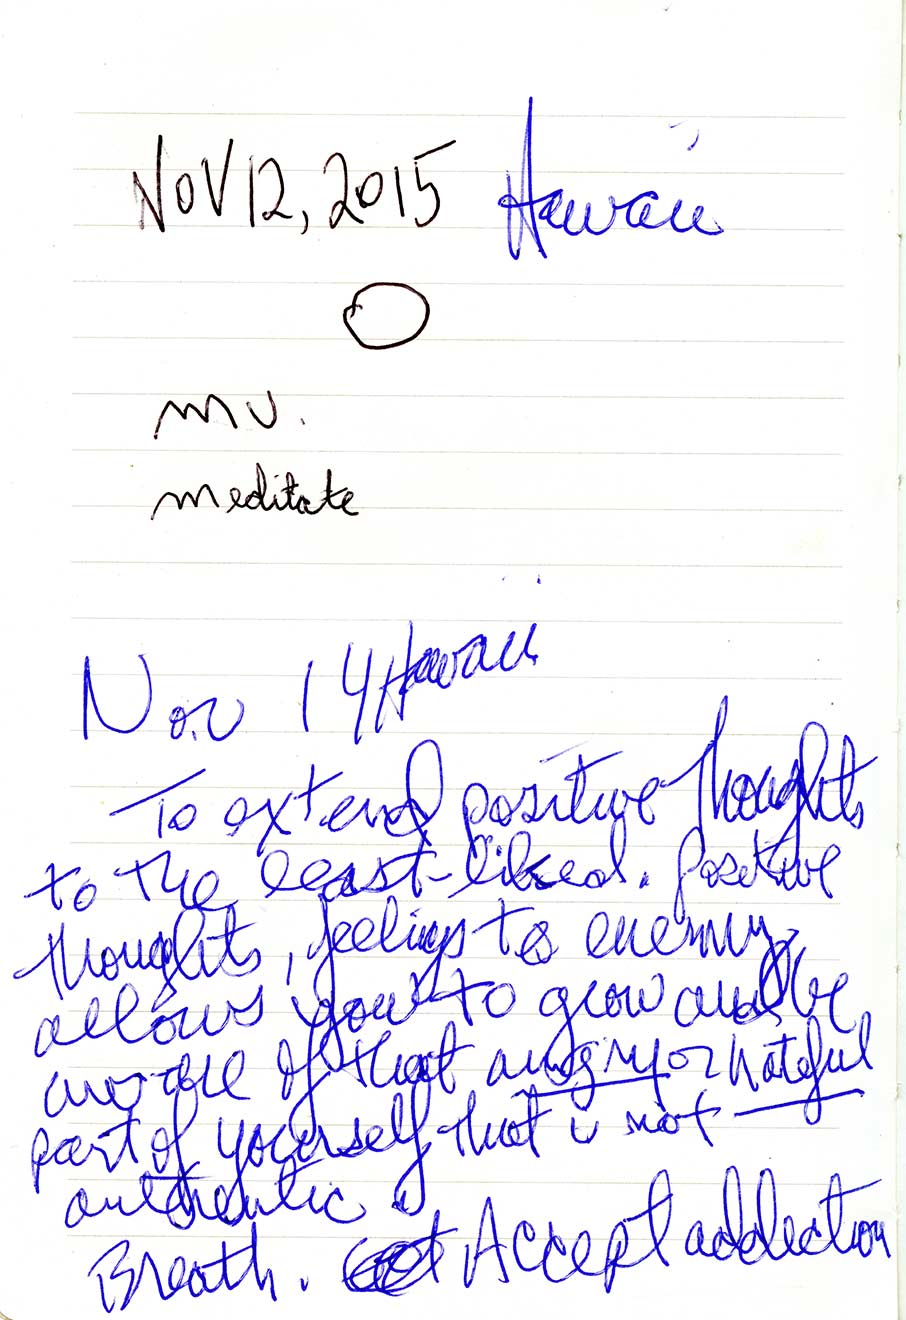 NOV 12, 2015 Hawaii
MU.
meditate
Nov 14 Hawaii
To extend positive thoughts
to the least-liked. positive
thoughts, feelings to enemy
allows you to grow and be
aware of that angry or hateful
part of yourself that is not
authentic
Breath. Accept addiction